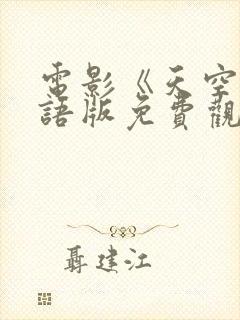 電影《天空
語版免費觀
聶建江